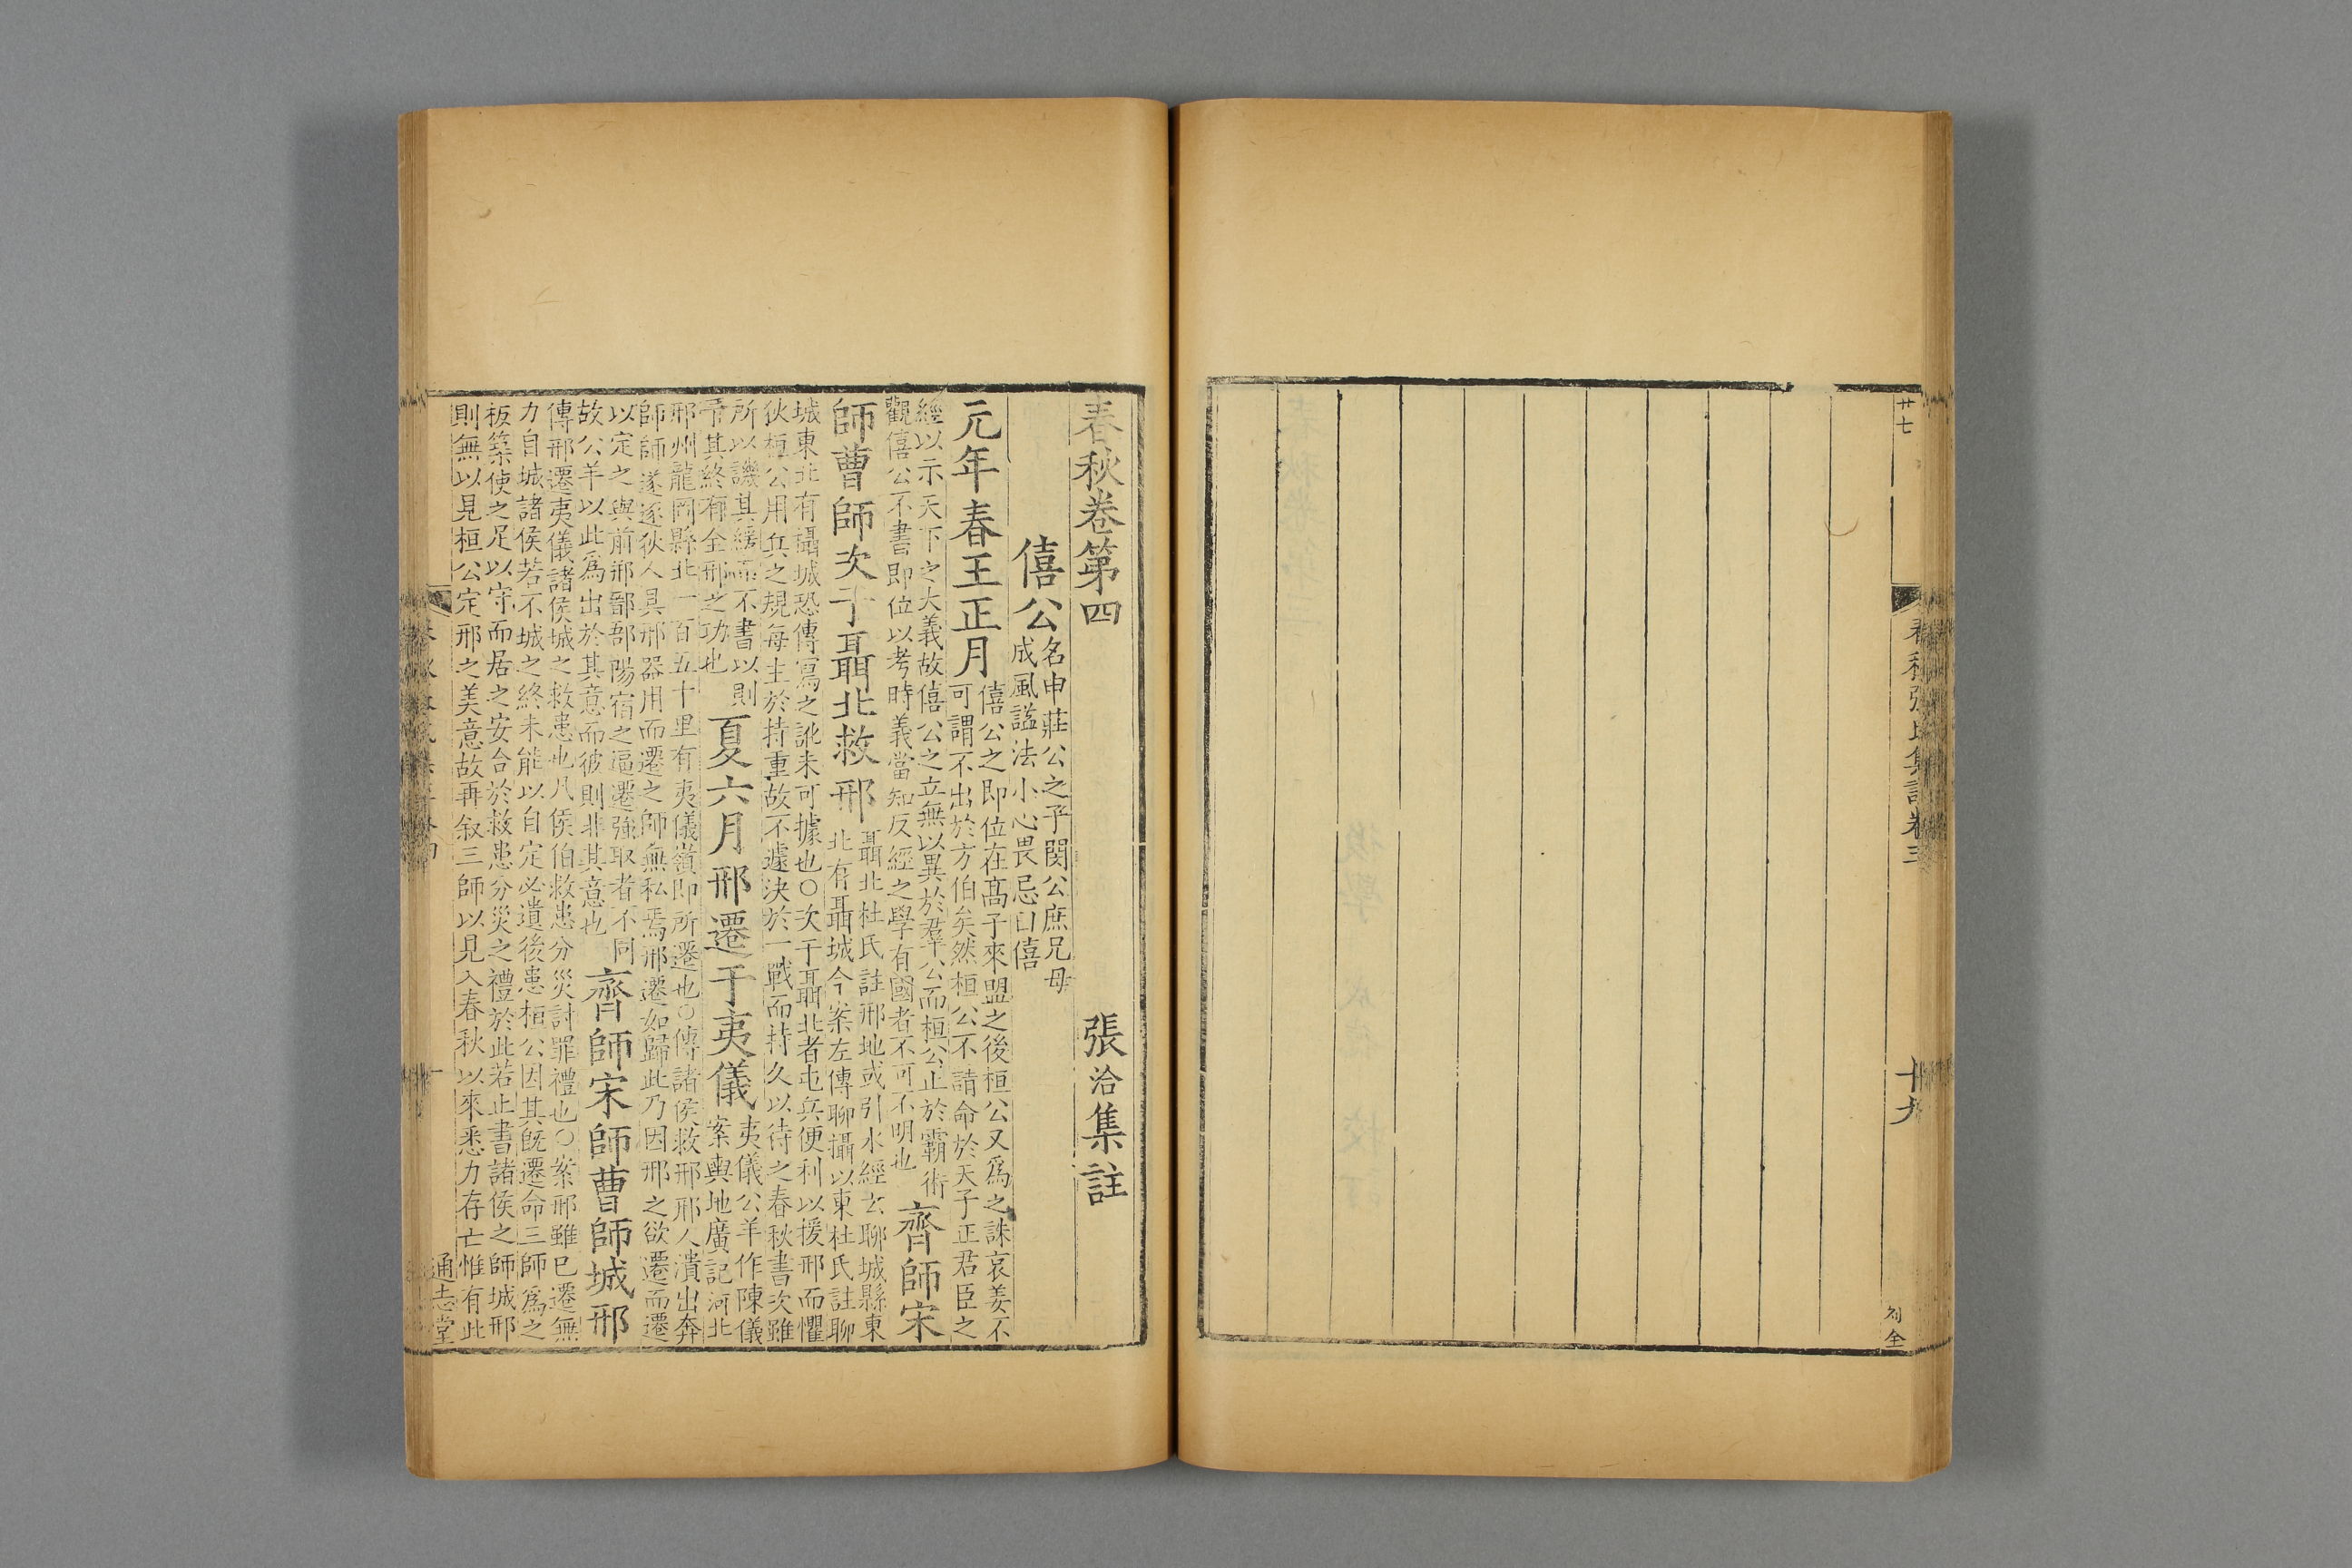 廿七
春秋張氏集註卷三
十九
刘全
春秋卷第四
張洽集註
僖公名申莊公之子閔公庶兄母
成風諡法小心畏忌曰僖
元年春王正月僖公之即位在髙子來盟之後桓公又爲之誅哀姜不
可謂不出於方伯矣然桓公不請命於天子正君臣之
經以示天下之大義故僖公之立無以異於羣公而桓公止於霸術
觀僖公不書即位以考時義當知反經之學有國者不可不明也
齊師宋
師曹師次于聶北救邢聶北杜氏註邢地或引水經云聊城縣東
北有聶城今案左傳聊攝以東杜氏註聊
城東北有攝城恐傳寫之訛未可據也○次于聶北者屯兵便利以援邢而懼
狄桓公用兵之規每主於持重故不遽決於一戰而持久以待之春秋書次雖
所以譏其緩而不書以則
予其終有全邢之功也
夏六月邢遷于夷儀夷儀公羊作陳儀
案輿地廣記河北
邢州龍岡縣北一百五十里有夷儀嶺即所遷也○傳諸侯救邢邢人潰出奔
師師遂逐狄人具邢器用而遷之師無私焉邢遷如歸此乃因邢之欲遷而遷
以定之與前邢鄑郚陽宿之逼遷強取者不同
故公羊以此爲出於其意而彼則非其意也
齊師宋師曹師城邢
傳邢遷夷儀諸侯城之救患也凡侯伯救患分災討罪禮也○案邢雖已遷無
力自城諸侯若不城之終未能以自定必遺後患桓公因其既遷命三師爲之
板築使之足以守而居之安合於救患分災之禮於此若止書諸侯之師城邢
則無以見桓公定邢之美意故再叙三師以見入春秋以來悉力存亡惟有此
通志堂